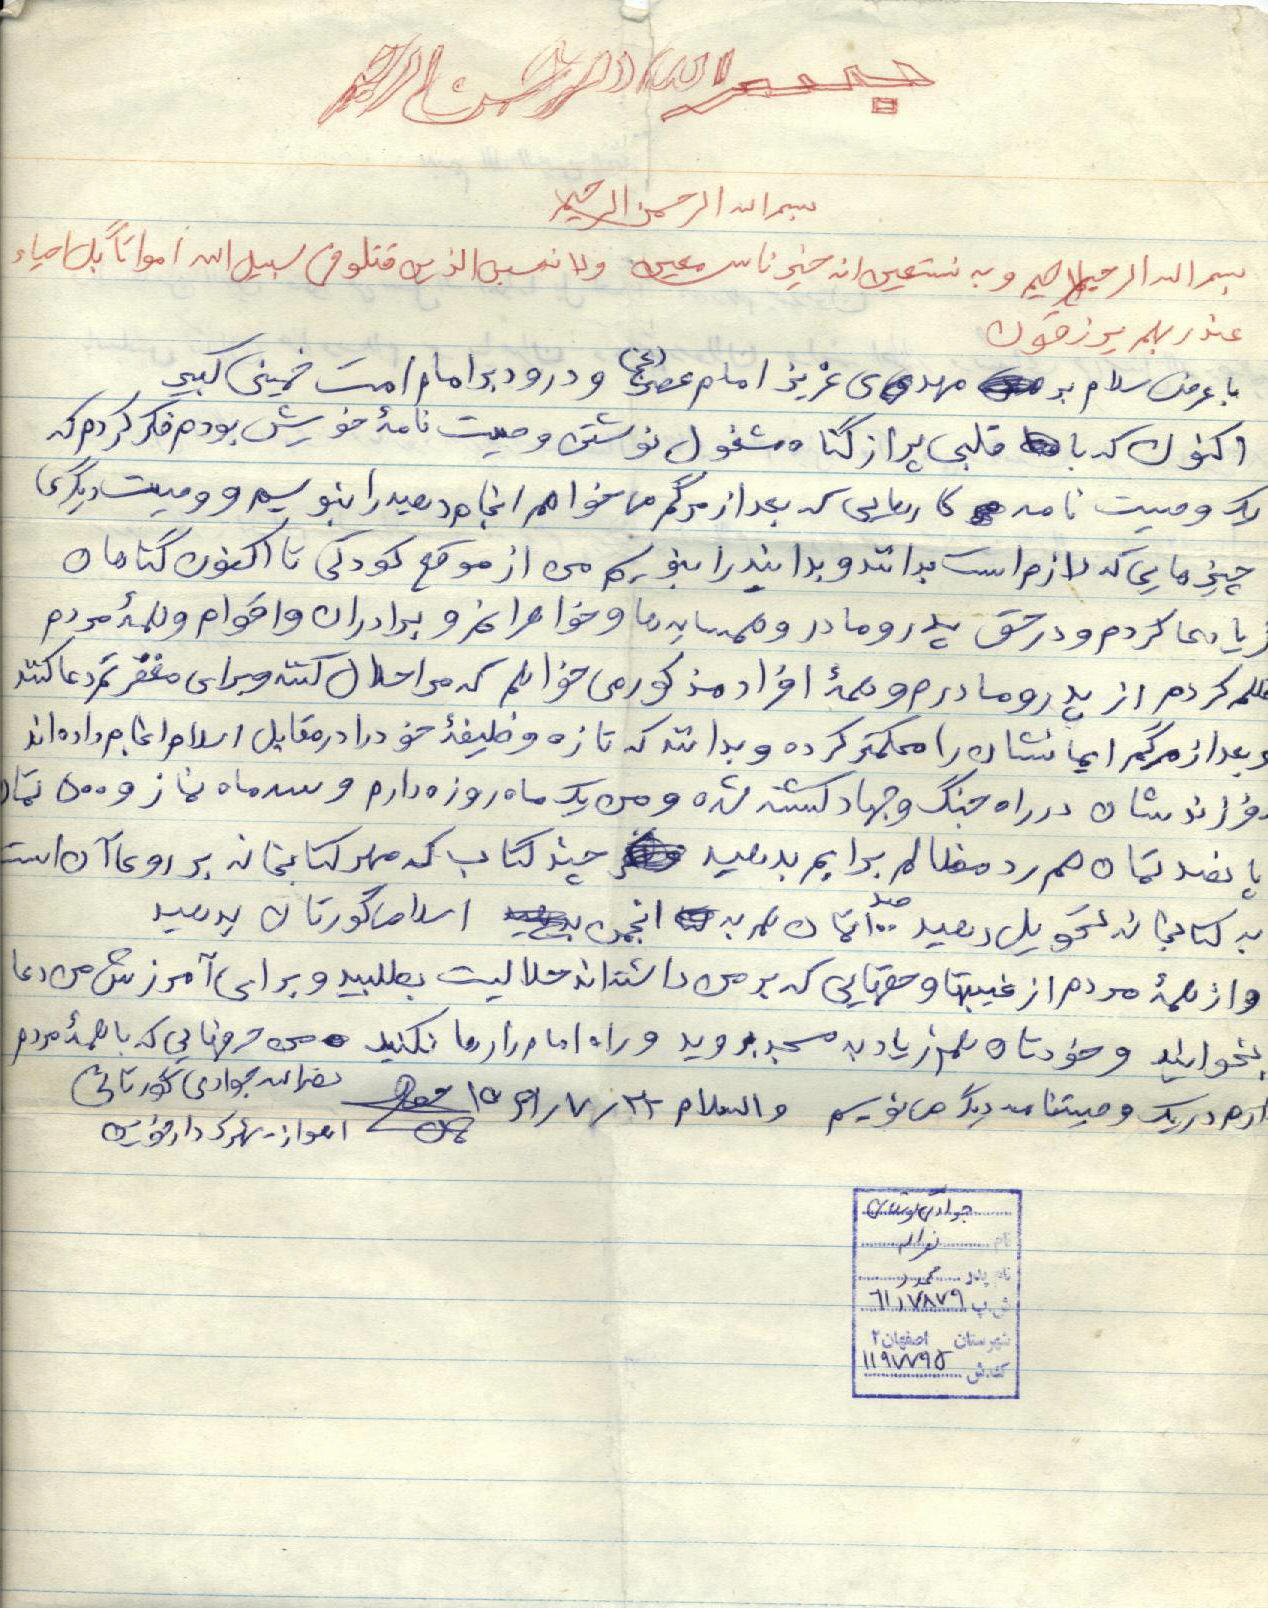 بسم الله الرحمن الرحیم
بسم الله الرحمن الرحیم
بسم الله الرحمن الرحیم و به نستعین انه خیر ناصر معین ولا تحسبن الذین قتلو فی سبیل الله امواتاً بل احیاء
عند ربهم یرزقون
با عرض سلام بر مهدی عزیز امام عصر (عج) و درود بر امام امت خمینی کبیر
اکنون که با قلبی پر از گناه مشغول نوشتن وصیت نامهٔ خویش بودم فکر کردم که
یک وصیت نامه کارهایی که بعد از مرگم می خواهم انجام دهید را بنویسم و وصیت دیگری
چیزهایی که لازم است بدانند و بدانید را بنویسم من از موقع کودکی تا اکنون گناهان
زیادی کردم و در حق پدر و مادر و همسایه ها و خواهرانم و برادران و اقوام و همهٔ مردم
ظلم کردم از پدر و مادرم و همهٔ افراد مذکور می خواهم که مرا حلال کنند و برای مغفرتم دعا کنند
و بعد از مرگم ایمانشان را محکمتر کرده و بدانند که تازه وظیفهٔ خود را در مقابل اسلام انجام داده اند
فرزندشان در راه جنگ و جهاد کشته شده و من یک ماه روزه دارم و سه ماه نماز و ۵۰۰ تمان
پانصد تمان هم رد مظالم برایم بدهید چند کتاب که مهر کتابخانه بر روی آن است
به کتابخانه تحویل دهید ۱۰۰ صد تمان هم به انجمن اسلامی گورتان بدهید
و از همهٔ مردم از غیبتها و حقهایی که بر من داشته اند حلالیت بطلبید و برای آمرزش من دعا
بخوانید و خودتان هم زیاد به مسجد بروید و راه امام را رها نکنید من حرفهایی که با همهٔ مردم
دارم در یک وصیتنامه دیگر می نویسم والسلام
نصرالله جوادی گورتانی
اهواز - شهرک دارخوین
جوادی گورتانی
نام نصراله
نام پدر محمود
ش پ ۶۱۱۷۸۷۹
شهرستان اصفهان ۲
کد ش ۱۱۹۷۷۹۵